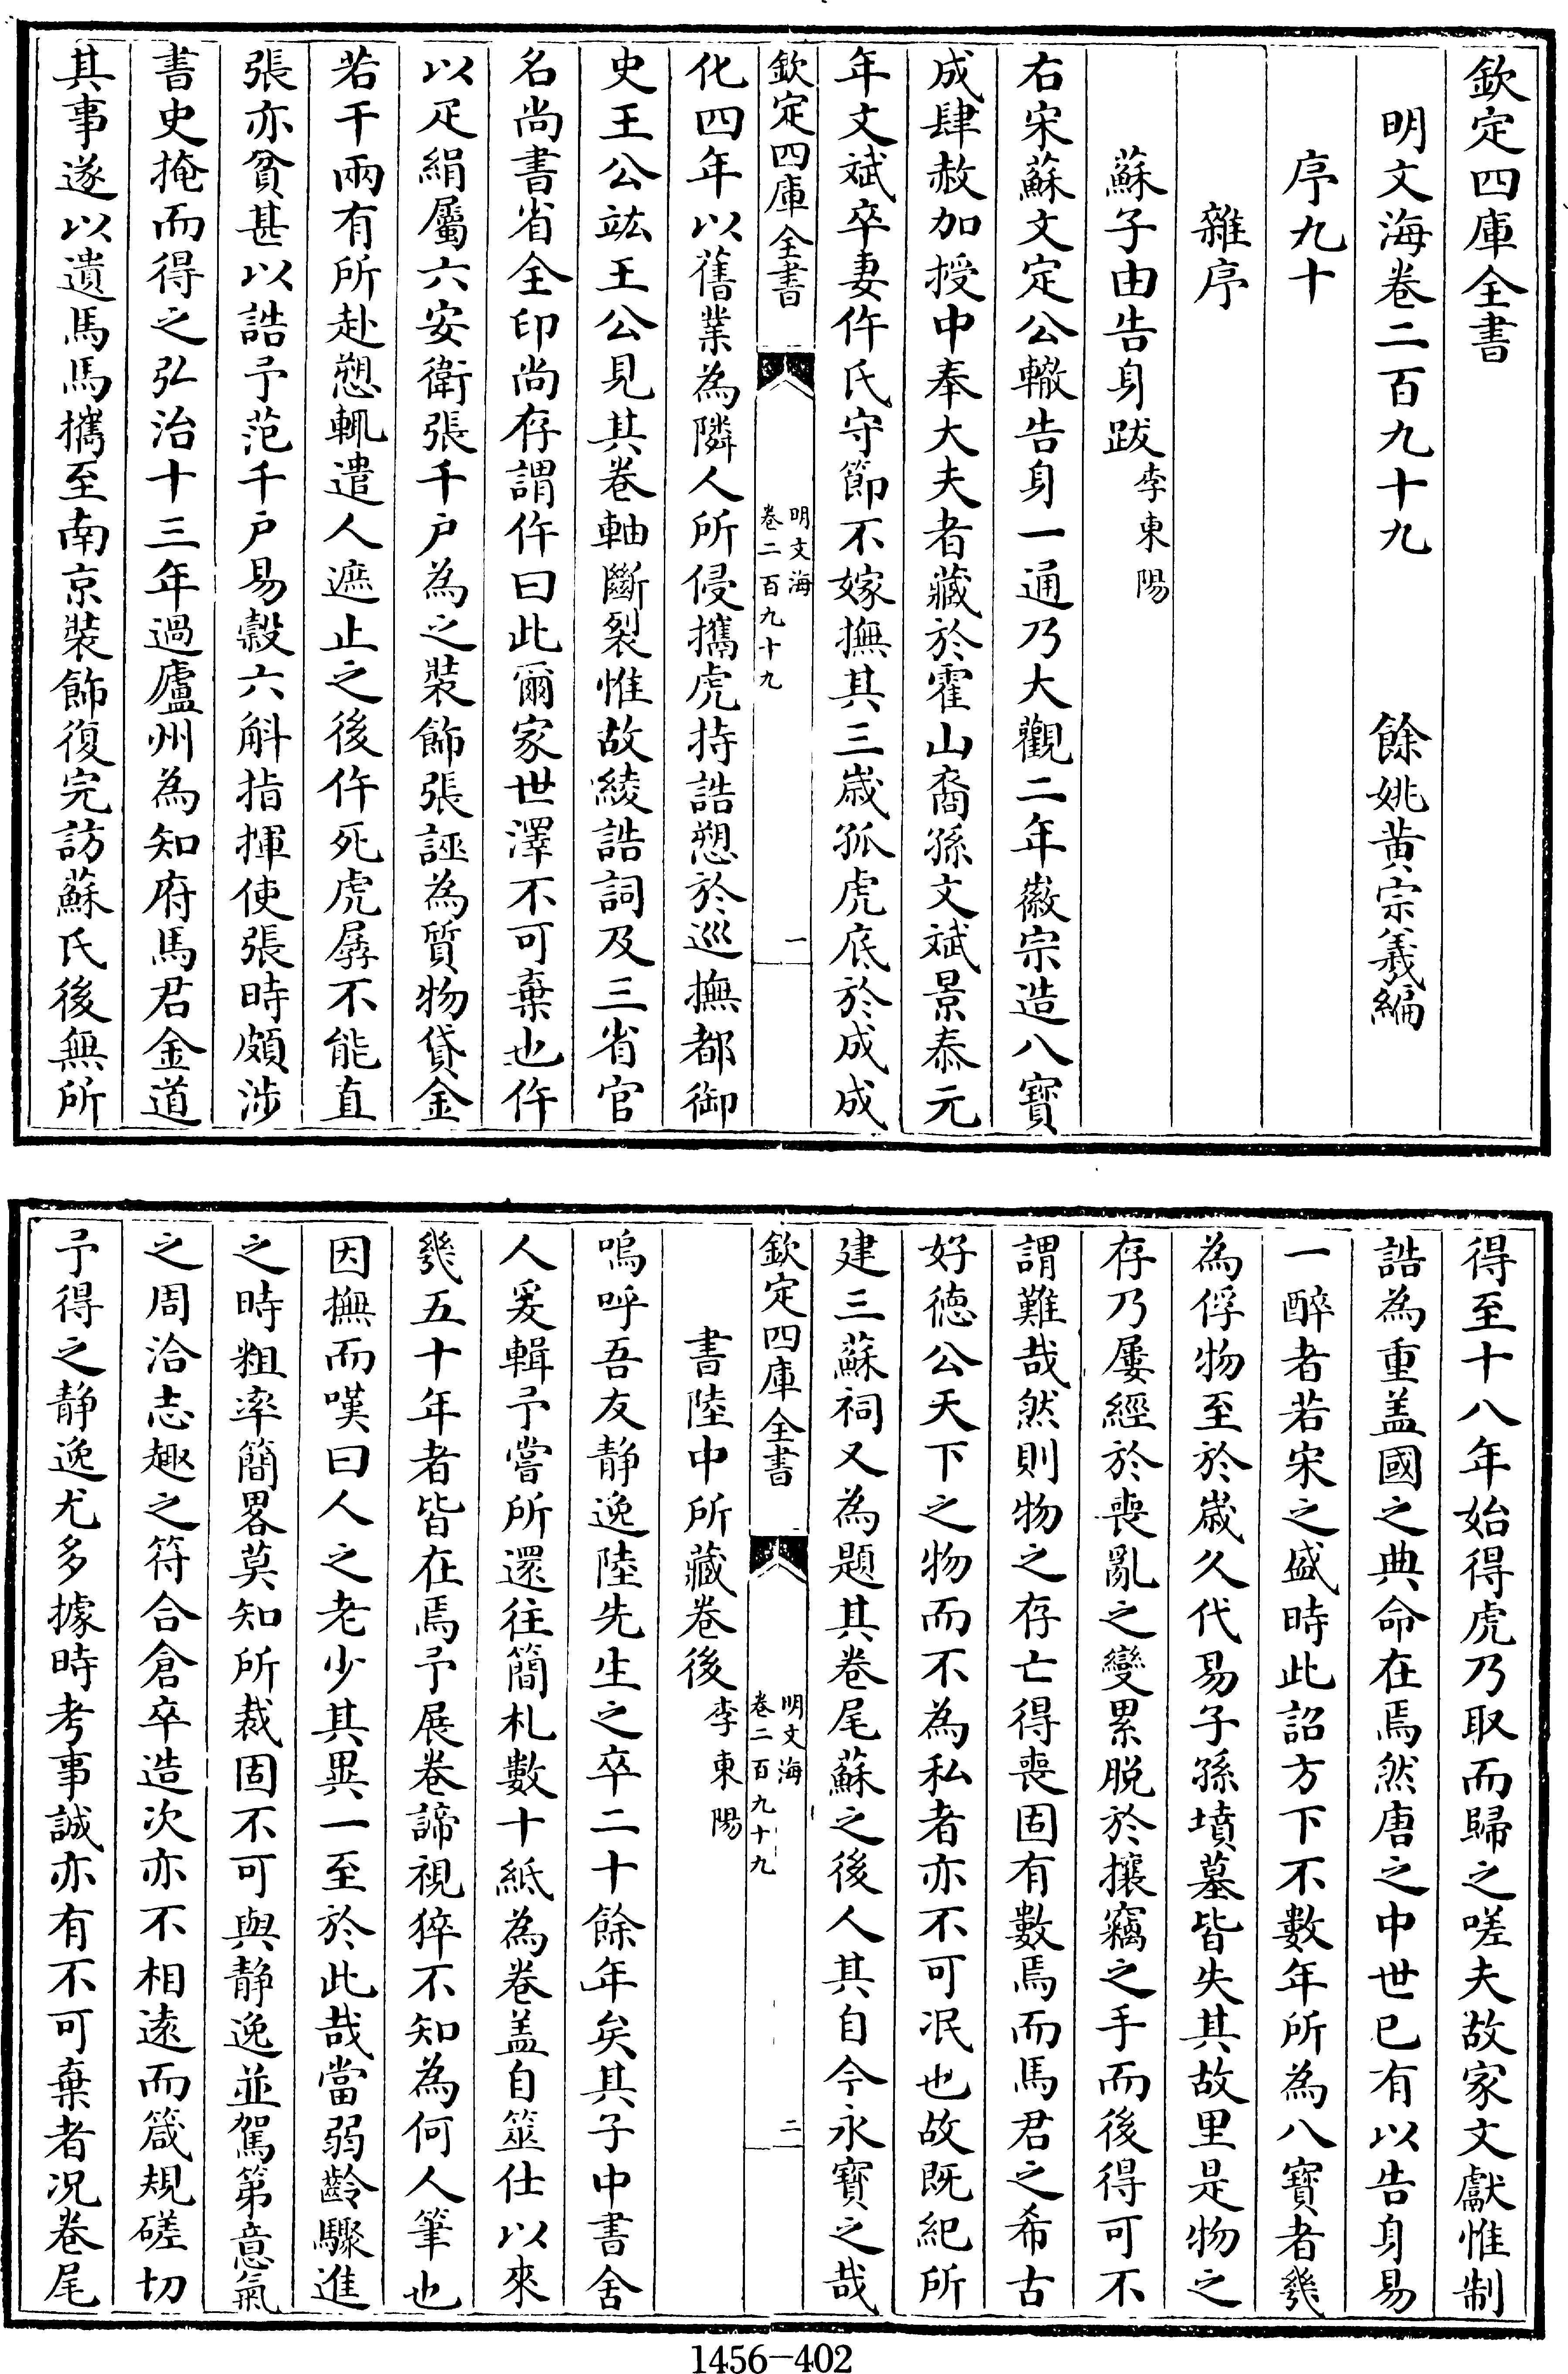 欽定四庫全書
明文海卷二百九十九　餘姚黄宗羲編
序九十
雜序
蘇子由告身跋李東陽
右宋蘇文定公轍告身一通乃大觀二年徽宗造八寶
成肆赦加授中奉大夫者藏於霍山裔孫文斌景泰元
年文斌卒妻仵氏守節不嫁撫其三嵗孤虎底於成成
欽定四庫全書
明文海
卷二百九十九
一
化四年以舊業為隣人所侵攜虎持誥愬於巡撫都御
史王公竑王公見其卷軸斷裂惟故綾誥詞及三省官
名尚書省全印尚存謂仵曰此爾家世澤不可棄也仵
以疋絹屬六安衛張千户為之裝飾張誣為質物貸金
若干兩有所赴愬輒遣人遮止之後仵死虎孱不能直
張亦貧甚以誥予范千户易穀六斛指揮使張時頗涉
書史掩而得之弘治十三年過廬州為知府馬君金道
其事遂以遺馬馬攜至南京裝飾復完訪蘇氏後無所
得至十八年始得虎乃取而歸之嗟夫故家文獻惟制
誥為重盖國之典命在焉然唐之中世已有以告身易
一醉者若宋之盛時此詔方下不數年所為八寶者㡬
為俘物至於嵗久代易子孫墳墓皆失其故里是物之
存乃屢經於喪亂之變累脱於攘竊之手而後得可不
謂難哉然則物之存亡得喪固有數焉而馬君之希古
好徳公天下之物而不為私者亦不可泯也故既紀所
建三蘇祠又為題其卷尾蘇之後人其自今永寶之哉
欽定四庫全書
明文海
卷二百九十九
二
書陸中所藏卷後李東陽
嗚呼吾友静逸陸先生之卒二十餘年矣其子中書舍
人爰輯予嘗所還往簡札數十紙為卷盖自筮仕以來
㡬五十年者皆在焉予展卷諦視猝不知為何人筆也
因撫而嘆曰人之老少其異一至於此哉當弱齡驟進
之時粗率簡畧莫知所裁固不可與静逸並駕第意氣
之周洽志趣之符合倉卒造次亦不相遠而箴規磋切
予得之静逸尤多據時考事誠亦有不可棄者况卷尾
1456-402